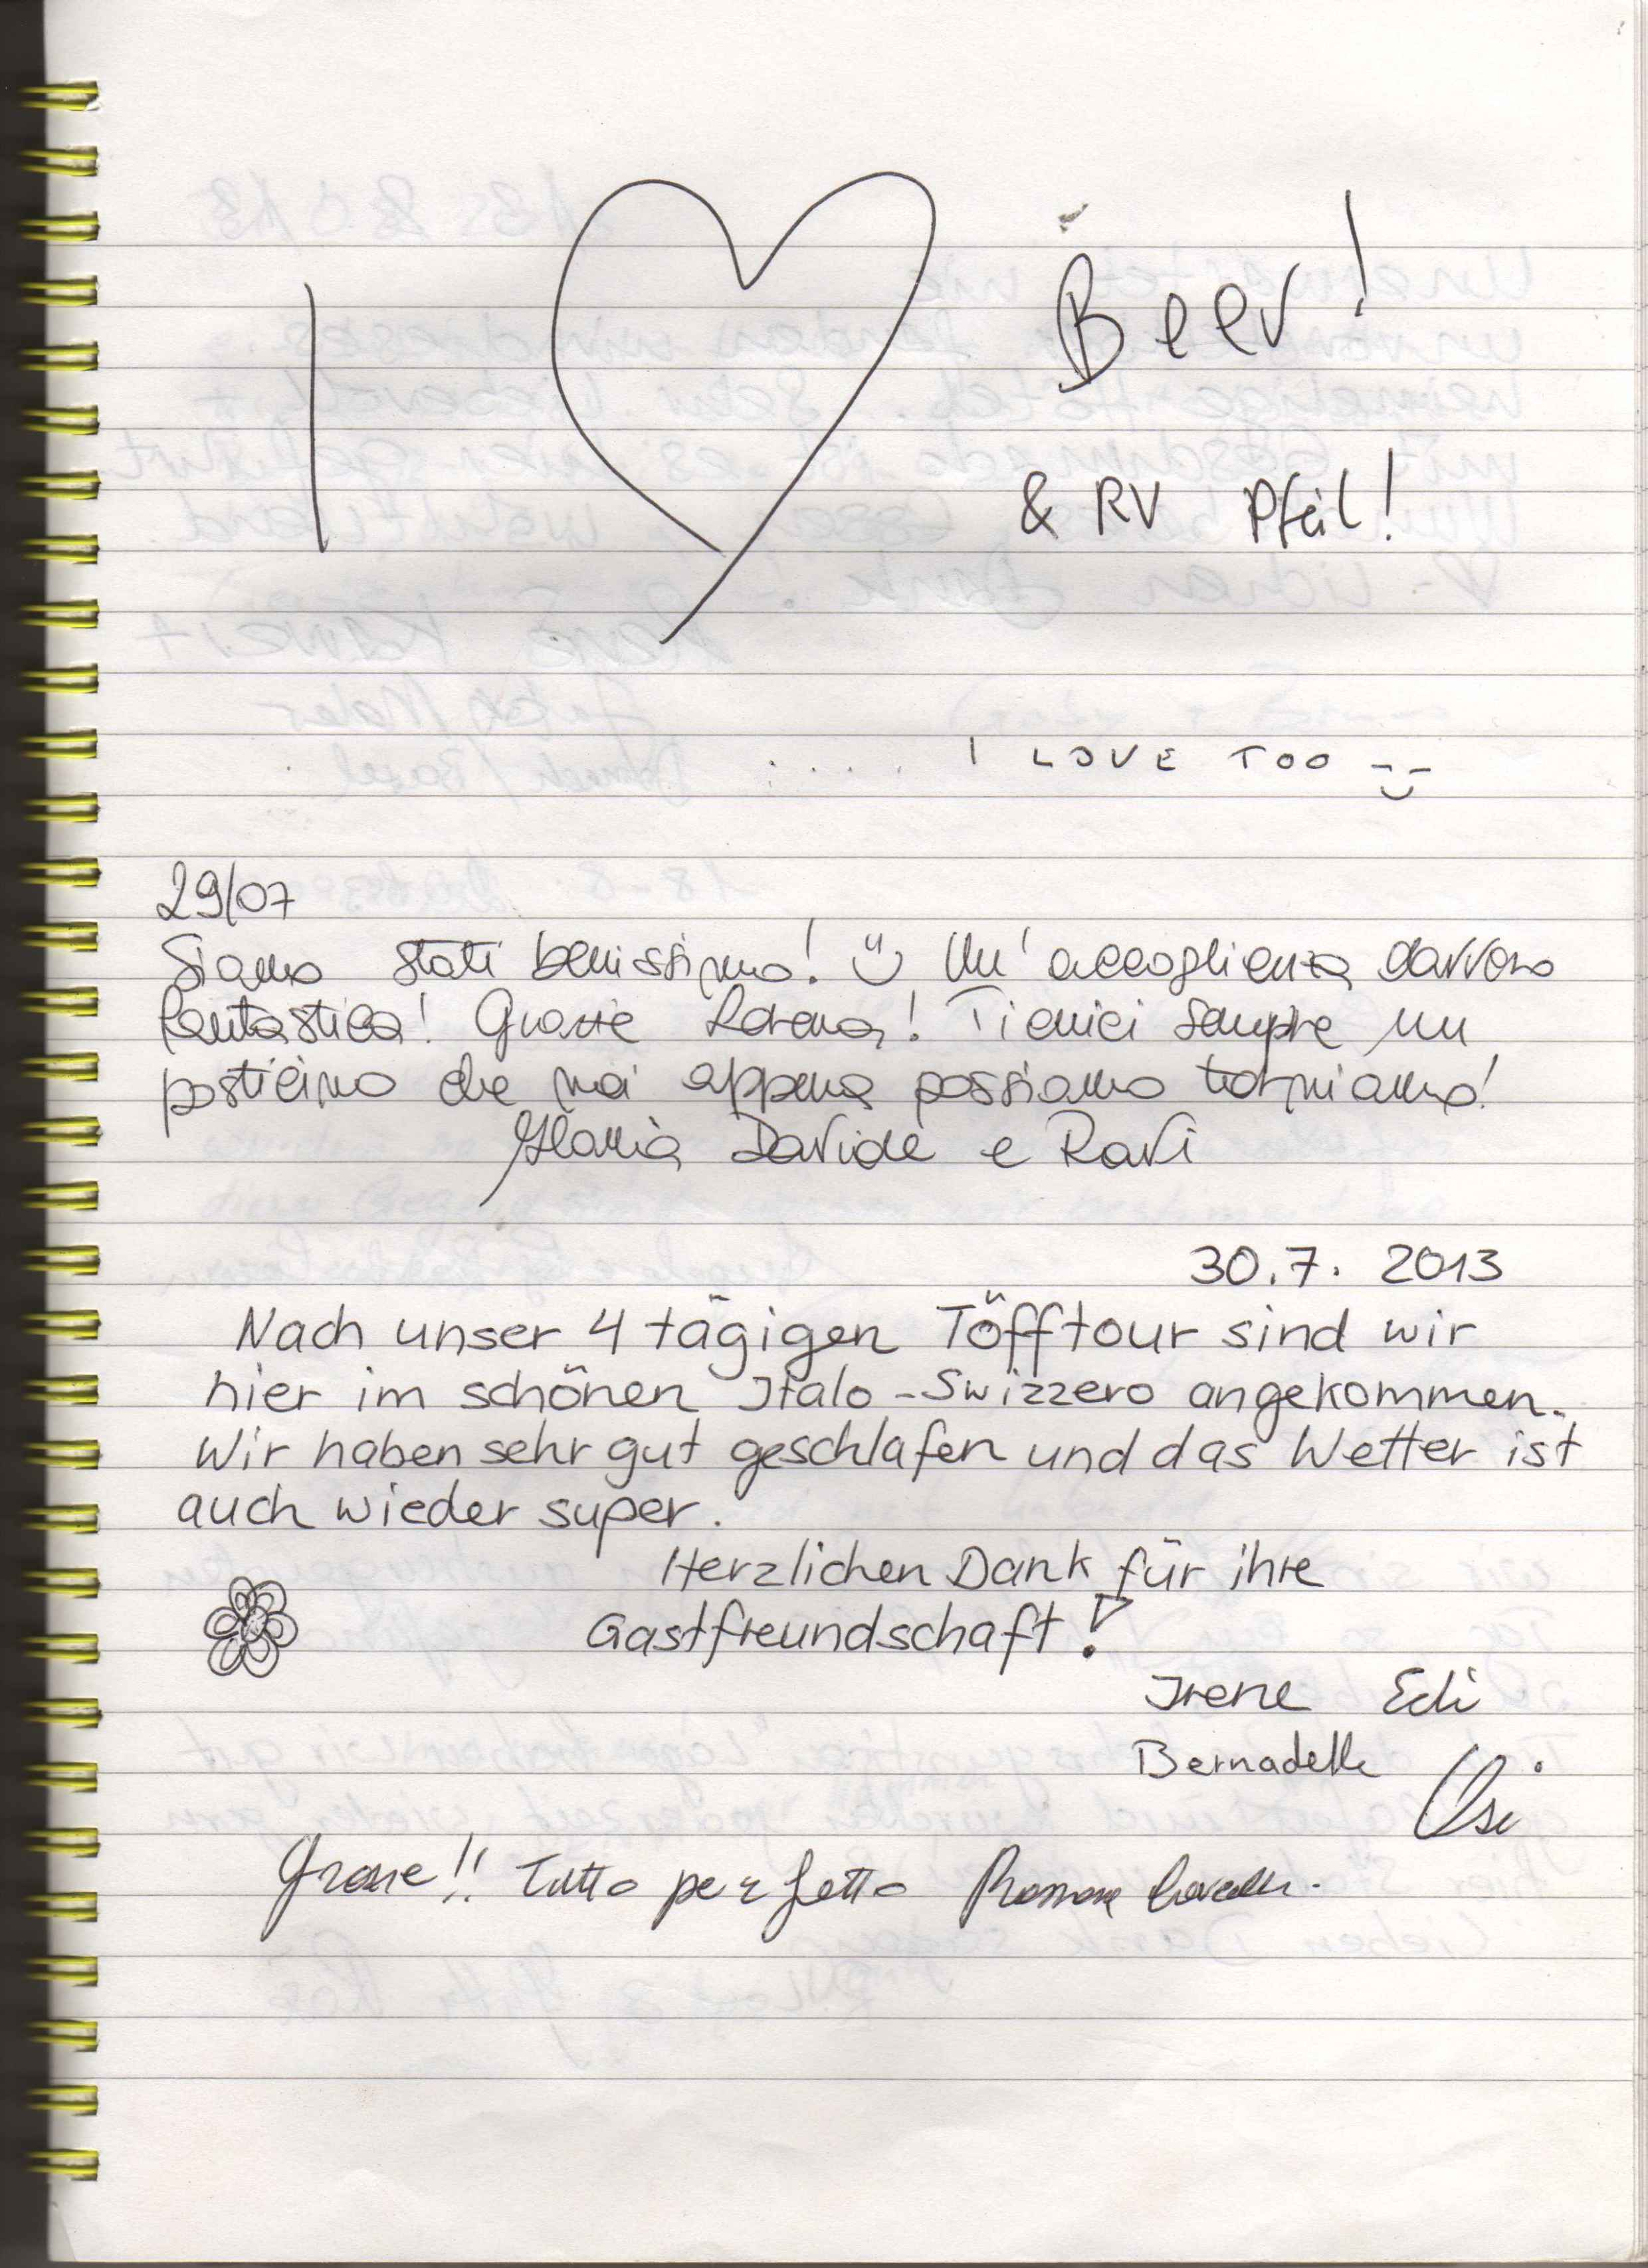 I ♥ Beer!
& RV Pfeil!
.... I LOVE TOO
29/07
Siamo stati benissimo! Un'accoglienza davvero
fantastica! Grazie Lorena! Tienici sempre un
posticino che noi appena possiamo torniamo!
Davide e Ravi
30.7. 2013
Nach unser 4 tägigen Töfftour sind wir
hier im schönen Italo-Swizzero angekommen.
Wir haben sehr gut geschlafen und das Wetter ist
auch wieder super.
Herzlichen Dank für ihre
Gastfreundschaft!
Irene Edi
Bernadette
Grazie!! Tutto perfetto